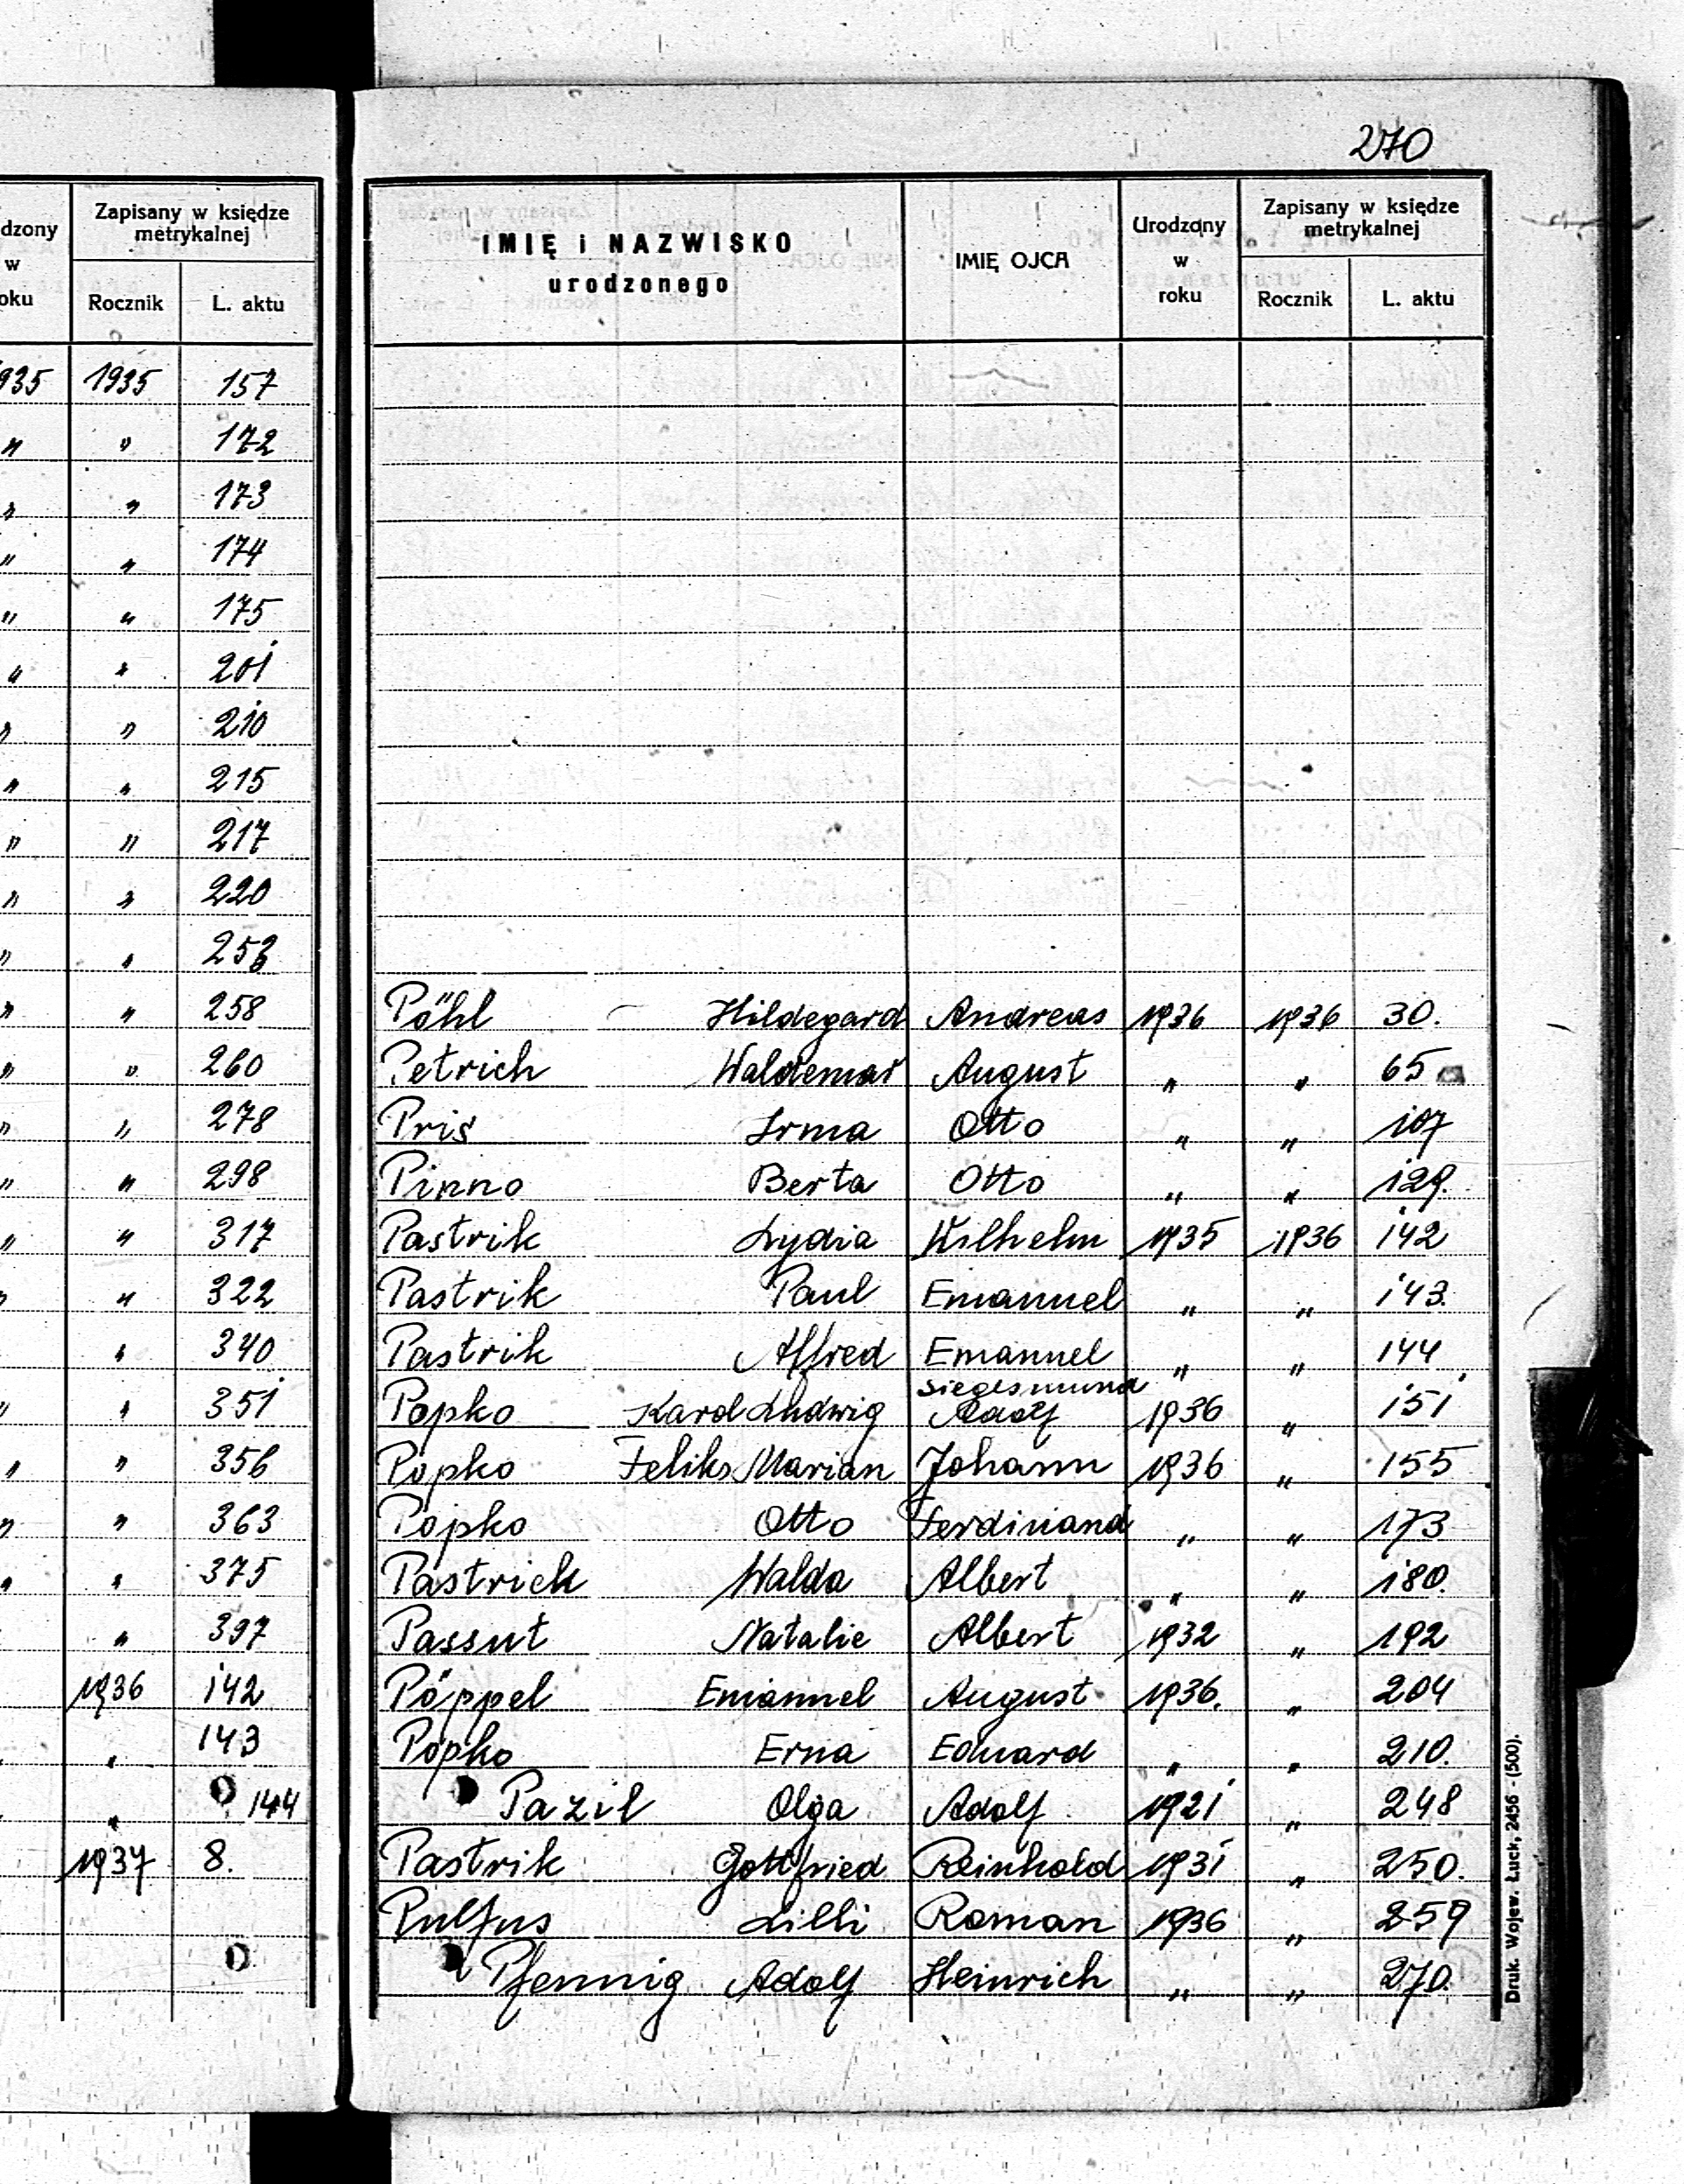 270
dzony w oku | Zapisany w księdze metrykalnej
Rocznik | L. aktu
935 1935 157
" " 172
" " 173
" " 174
" " 175
" " 201
" " 210
" " 215
" " 217
" " 220
" "
" " 258
" " 260
" " 278
" " 298
" " 317
" " 322
" 340
" " 351
" " 356
" " 363
" " 375
" 397
1936 142
" 143
" 144
1937 8.
IMIĘ i NAZWISKO urodzonego | IMIĘ OJCA | Urodzony w roku | Zapisany w księdze metrykalnej
Rocznik | L. aktu
Pöhl Hildegard Andreas 1936 1936 30.
Petrich Waldemar August " " 65
Pris Irma Otto " " 107
Pinno Berta Otto " " 129.
Pastrik Lydia Wilhelm 1935 1936 142
Pastrik Paul Emanuel " " 143.
Pastrik Alfred Emanuel " " 144
Siegismund
Popko Karol Ludwig Adolf 1936 " 151
Popko Feliks Marian Johann 1936 " 155
Popko Otto Ferdinand " " 173
Pastrick Walda Albert " " 180.
Passut Natalie Albert 1932 " 192
Pöppel Emanuel August 1936. " 204
Popko Erna Eduard " " 210.
Pazil Olga Adolf 1921 " 248
Pastrik Gottfried Reinhold 1931 " 250.
Pulfus Lilli Roman 1936 " 259
Pfennig Adolf Heinrich " " 270.
Druk. Wojew. Łuck, 2456 - (500).